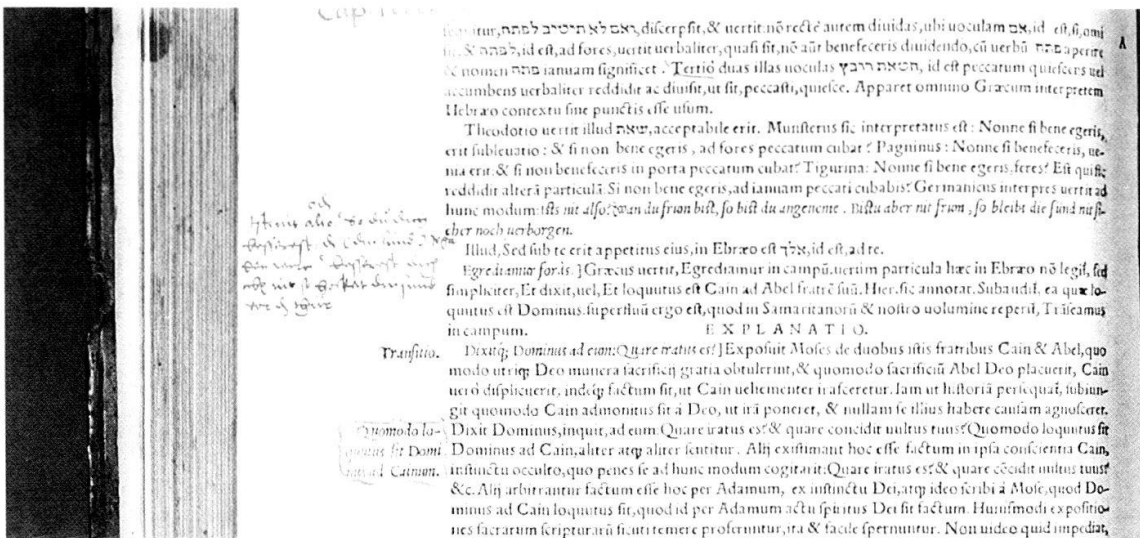 ואם לא תיטיב לפתח, discerpsit, & uertit. nō recte autem diuidas, ubi uoculam אם, id est, si, omi
sit, & לפתח, id est, ad fores, uertit uerbaliter, quasi sit, nō aūt benefeceris diuidendo, cū uerbū פתח aperire
& nomen פתח ianuam significet. Tertiò duas illas uoculas חטאת רובץ, id est peccatum quiescens uel
accumbens uerbaliter reddidit ac diuisit, ut sit, peccasti, quiesce. Apparet omnino Græcum interpretem
Hebræo contextu sine punctis esse usum.
Theodotio uertit illud שאת, acceptabile erit. Munsterus sic interpretatus est: Nonne si bene egeris,
erit subleuatio: & si non bene egeris, ad fores peccatum cubat? Pagninus: Nonne si benefeceris, ue-
nia erit: & si non benefeceris in porta peccatum cubat? Tigurina: Nonne si bene egeris, feres? Est quisic
reddidit alterā particulā. Si non bene egeris, ad ianuam peccati cubabis? Germanicus interpres uertit ad
hunc modum: ists nit also? wan du frum bist, so bist du angeneme. Bistu aber nit frum, so bleibt die sund nit si-
cher noch uerborgen.
Illud, Sed sub te erit appetitus eius, in Ebræo est אלך, id est, ad te.
Egrediamur foras.] Græcus uertit, Egrediamur in campū. uerum particula hæc in Ebræo nō legiť, sed
simpliciter, Et dixit, uel, Et loquutus est Cain ad Abel fratrē suū. Hier. sic annotat. Subaudiť, ea quæ lo-
quutus est Dominus. superfluū ergo est, quod in Samaritanorū & nostro uolumine reperiť, Trāseamus
in campum. EXPLANATIO.
Transitio. Dixitq; Dominus ad eum: Quare iratus es?] Exposuit Moses de duobus istis fratribus Cain & Abel, quo
modo utriq; Deo munera sacrificij gratia obtulerint, & quomodo sacrificiū Abel Deo placuerit, Cain
uerò displicuerit, indeq; factum sit, ut Cain uehementer irasceretur. Iam ut historiā persequať, subiun-
git quomodo Cain admonitus sit à Deo, ut irā poneret, & nullam se illius habere causam agnosceret.
Quomodo lo- Dixit Dominus, inquit, ad eum: Quare iratus es? & quare concidit uultus tuus? Quomodo loquutus sit
quutus sit Domi Dominus ad Cain, aliter atq; aliter sentitur. Alij existimant hoc esse factum in ipsa conscientia Cain,
nus ad Cainum. instinctu occulto, quo penes se ad hunc modum cogitarit: Quare iratus es? & quare cōcidit uultus tuus?
&c. Alij arbitrantur factum esse hoc per Adamum, ex instinctu Dei, atq; ideo scribi à Mose, quod Do-
minus ad Cain loquutus sit, quod id per Adamum actu spiritus Dei sit factum. Huiusmodi expositio-
nes sacrarum scripturarū sicuti temere proferuntur, ita & facile spernuntur. Non uideo quid impediat,
A